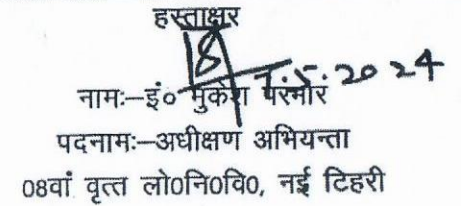 हस्ताक्षर
7.5.2024
नामः–इं० मुकेश परमार
पदनामः–अधीक्षण अभियन्ता
08वां वृत्त लो0नि0वि0, नई टिहरी